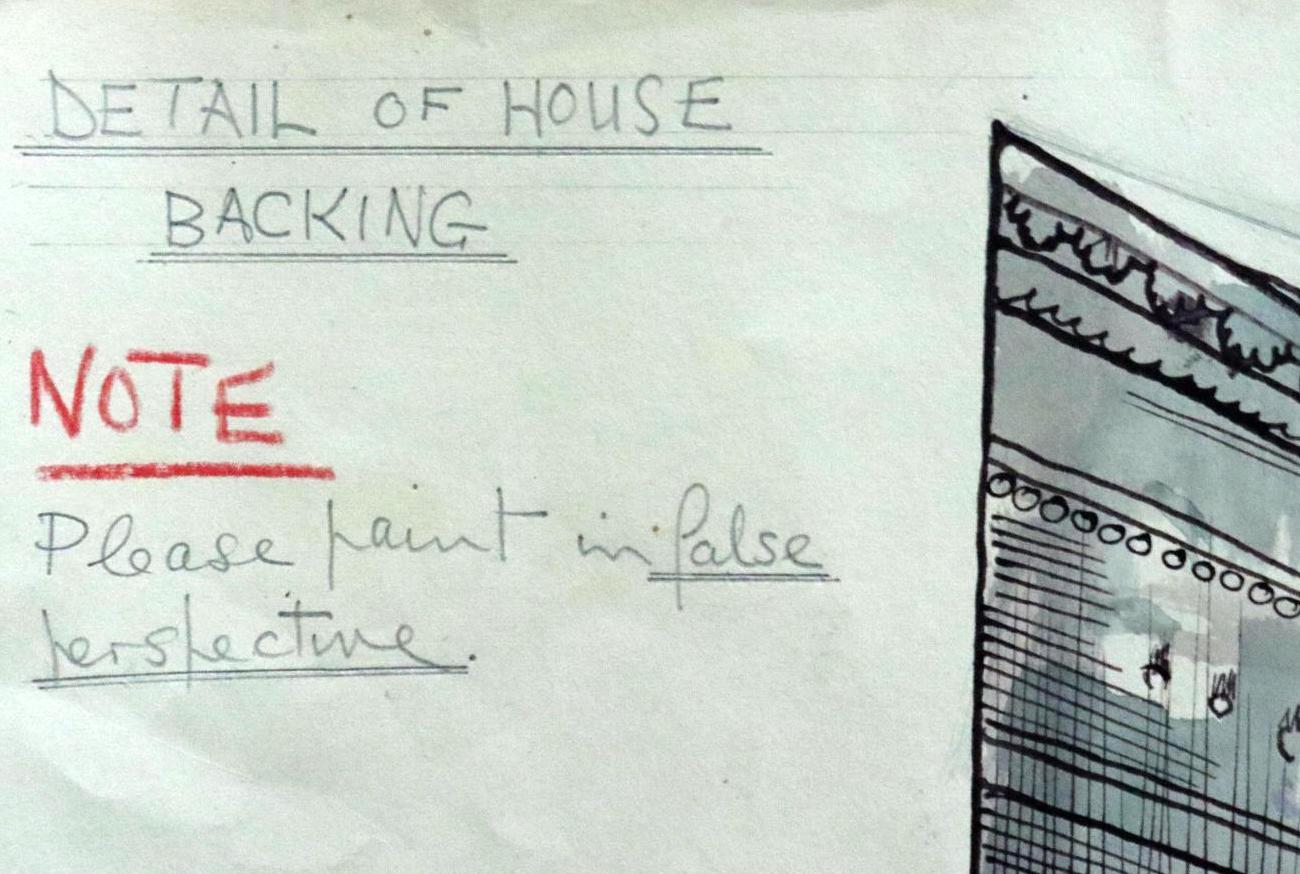 DETAIL OF HOUSE
BACKING
NOTE
Please paint in false
perspective.